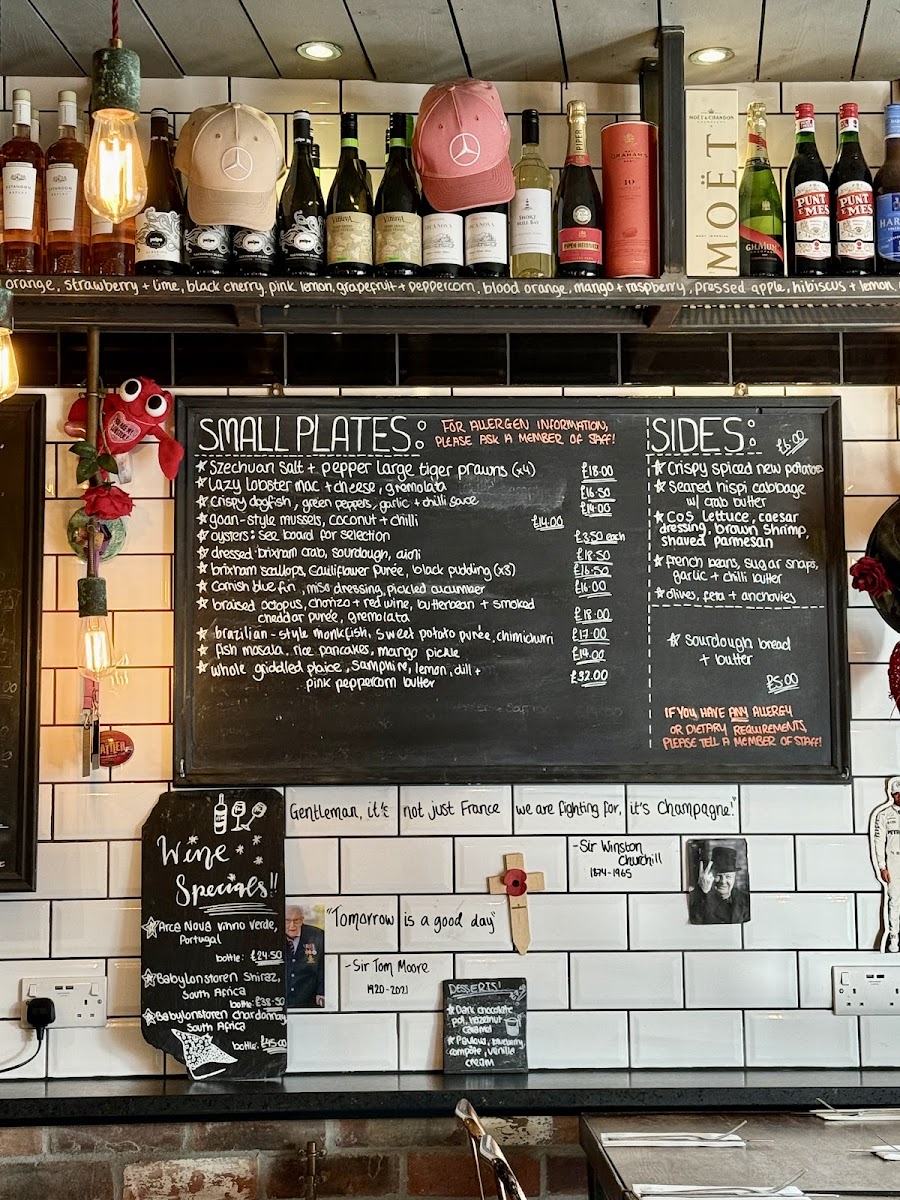 MOËT & CHANDON
MOËT
PIPER
PIPER-HEIDSIECK
GRAHAM'S
10
SHORT
PUNT
E MES
PUNT
E MES
G.H.MUMM
orange, strawberry + lime, black cherry, pink lemon, grapefruit + peppercorn, blood orange, mango + raspberry, pressed apple, hibiscus + lemon,
SMALL PLATES:
FOR ALLERGEN INFORMATION,
PLEASE ASK A MEMBER OF STAFF!
Szechuan salt + pepper large tiger prawns (x4) £18.00
Lazy lobster mac + cheese, gremolata £16.50
crispy dogfish, green peppers, garlic + chilli sauce £14.00
goan-style mussels, coconut + chilli £14.00
oysters: see board for selection £3.50 each
dressed brixham crab, sourdough, aioli £18.50
brixham scallops, cauliflower purée, black pudding (x3) £16.50
cornish blue fin, miso dressing, pickled cucumber £16.00
braised octopus, chorizo + red wine, butterbean + smoked
cheddar purée, gremolata £18.00
brazilian-style monkfish, sweet potato purée, chimichurri £17.00
fish masala, rice pancakes, mango pickle £14.00
whole griddled plaice, samphire, lemon, dill +
pink peppercorn butter £32.00
SIDES:
£6.00
Crispy spiced new potatoes
Seared hispi cabbage
w/ crab butter
COS lettuce, caesar
dressing, brown shrimp,
shaved parmesan
french beans, sugar snaps,
garlic + chilli butter
olives, feta + anchovies
sourdough bread
+ butter
£5.00
IF YOU HAVE ANY ALLERGY
OR DIETARY REQUIREMENTS,
PLEASE TELL A MEMBER OF STAFF!
RATTLER
Gentleman, it's not just France we are fighting for, it's Champagne!"
-Sir Winston
Churchill
1874-1965
"Tomorrow is a good day"
-Sir Tom Moore
1920-2021
Wine
Specials!!
Arca Nova vinho verde,
Portugal
bottle: £24.50
Babylonstoren Shiraz,
South Africa
bottle: £38.50
Babylonstoren Chardonnay
South Africa
bottle: £45.00
DESSERTS!
Dark chocolate
pot, hazelnut
caramel
Pavlova, blueberry
compote, vanilla
cream